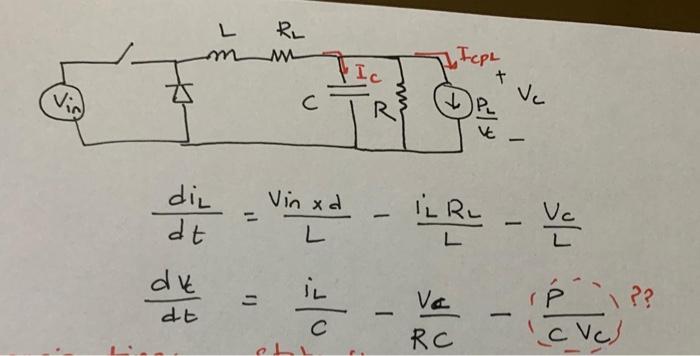 L R_L
I_c I_CPL
+
Vin C R P_L/V_c V_c
−
di_L/dt = Vin x d/L − i_L R_L/L − V_c/L
dV_c/dt = i_L/C − V_c/RC − P/C V_c ??